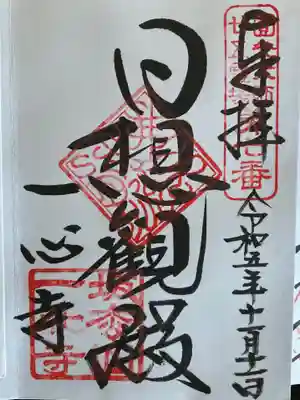 奉拝
令和五年十一月十一日
日想観殿
一心寺